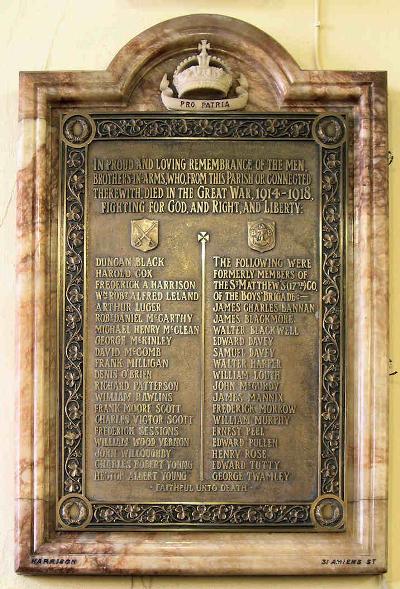 PRO PATRIA
IN PROUD AND LOVING REMEMBRANCE OF THE MEN,
BROTHERS-IN-ARMS, WHO, FROM THIS PARISH OR CONNECTED
THEREWITH, DIED IN THE GREAT WAR, 1914-1918,
FIGHTING FOR GOD, AND RIGHT, AND LIBERTY:
DUNCAN BLACK
HAROLD COX
FREDERICK A HARRISON
WM ROBT ALFRED LELAND
ARTHUR LUGER
ROBT DANIEL MCCARTHY
MICHAEL HENRY MCCLEAN
GEORGE MCKINLEY
DAVID MCCOMB
FRANK MILLIGAN
DENIS O'BRIEN
RICHARD PATTERSON
WILLIAM RAWLINS
FRANK MOORE SCOTT
CHARLES VICTOR SCOTT
FREDERICK SESSIONS
WILLIAM WOOD VERNON
JOHN WILLOUGHBY
CHARLES ROBERT YOUNG
HECTOR ALBERT YOUNG
THE FOLLOWING WERE
FORMERLY MEMBERS OF
THE ST MATTHEW'S (17TH) CO.
OF THE BOYS' BRIGADE:-
JAMES CHARLES BANNAN
JAMES BLACKMORE
WALTER BLACKWELL
EDWARD DAVEY
SAMUEL DAVEY
WALTER HARPER
WILLIAM LOUTH
JOHN MCCURDY
JAMES MANNIX
FREDERICK MORROW
WILLIAM MURPHY
ERNEST PEEL
EDWARD PULLEN
HENRY ROSE
EDWARD TUTTY
GEORGE TWAMLEY
FAITHFUL UNTO DEATH
HARRISON
31 AMIENS ST